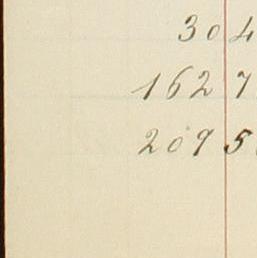 304
1627
2095